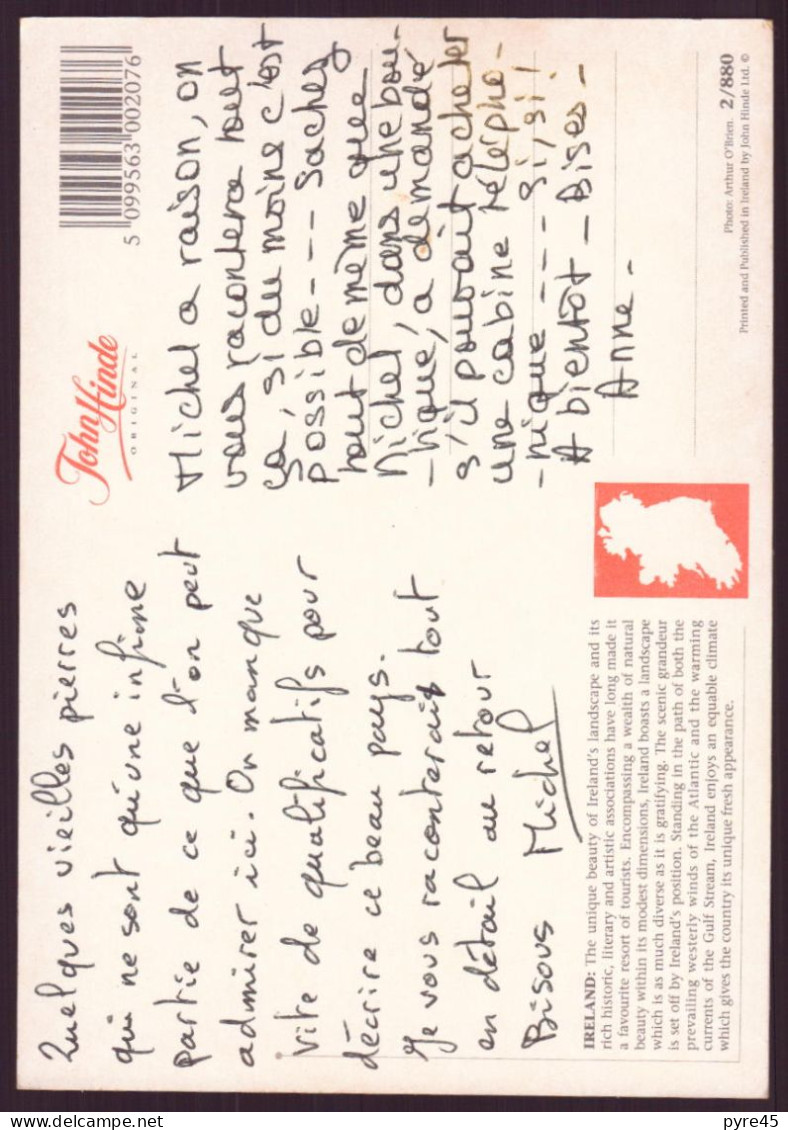 Quelques vieilles pierres
qui ne sont qu'une infime
partie de ce que l'on peut
admirer ici. On manque
vite de qualificatifs pour
décrire ce beau pays.
Je vous raconterais tout
en détail au retour
Bisous Michel
IRELAND: The unique beauty of Ireland's landscape and its
rich historic, literary and artistic associations have long made it
a favourite resort of tourists. Encompassing a wealth of natural
beauty within its modest dimensions, Ireland boasts a landscape
which is as much diverse as it is gratifying. The scenic grandeur
is set off by Ireland's position. Standing in the path of both the
prevailing westerly winds of the Atlantic and the warming
currents of the Gulf Stream, Ireland enjoys an equable climate
which gives the country its unique fresh appearance.
John Hinde
ORIGINAL
5 099563 002076
Michel a raison, on
vous racontera tout
ça, si du moins c'est
possible --- Sachez
tout de même que
Michel, dans une bou-
-tique, a demandé
s'il pouvait acheter
une cabine télépho-
-nique --- si, si!
A bientôt - Bises -
Anne -
Photo: Arthur O'Brien. 2/880
Printed and Published in Ireland by John Hinde Ltd. ©
pyre45